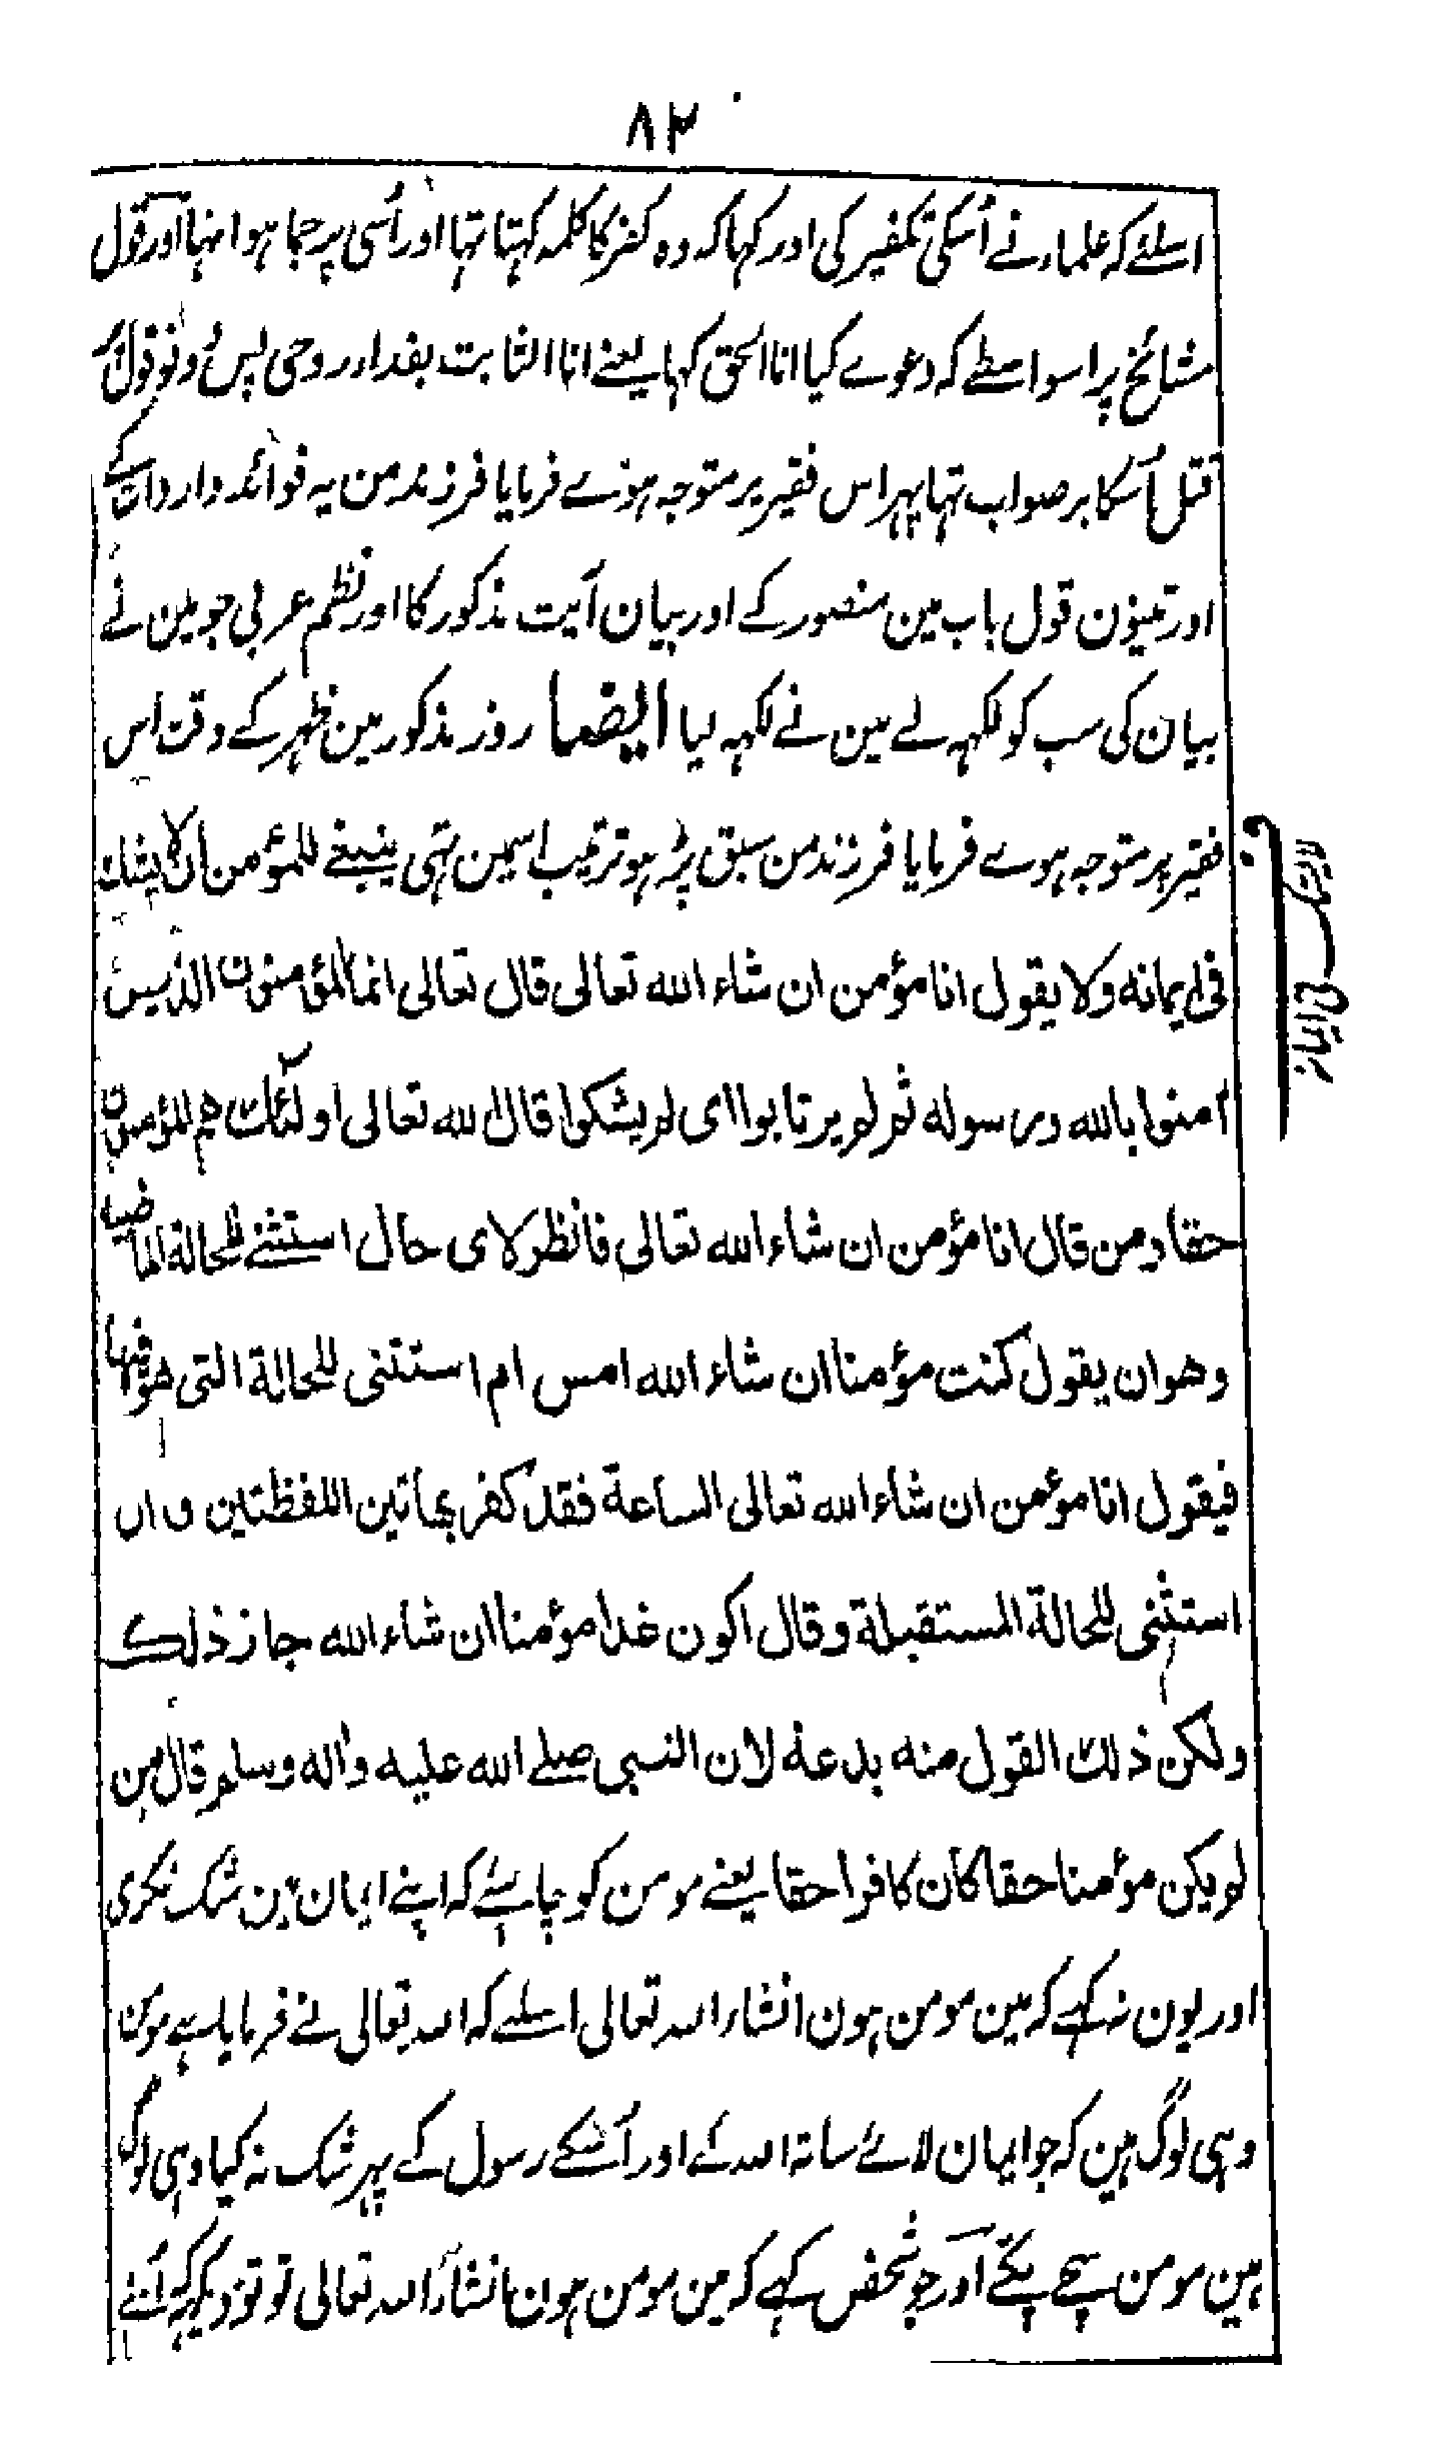 ۸۲
اسلئے کہ علماء نے اُسکی تکفیر کی اور کہا کہ وہ کفر کا کلمہ کہتا تہا اور اُسی پر جما ہوا تہا اور قول
مشائخ پر اسواسطے کہ دعوے کیا انا الحق کہا یعنے انا الثابت بفداء روحی پس دونو قول پر
قتل اُسکا بر صواب تہا پہر اس فقیر پر متوجہ ہوے فرمایا فرزند من یہ فوائد واردات کے
اور تینون قول باب مین منصور کے اور بیان آیت مذکور کا اور نظم عربی جو مین نے
بیان کی سب کو لکہہ لے مین نے لکہہ لیا ایضا روز مذکور مین ظہر کے وقت اس
فقیر پر متوجہ ہوے فرمایا فرزند من سبق پڑہو ترتیب اسمین تہی ینبغے للمؤمن ان لا یشك
فی ایمانه ولا یقول انا مؤمن ان شاء الله تعالی قال تعالی انما المؤمنون الذین
امنوا بالله ورسوله ثم لم یرتابوا ای لم یشکوا قال الله تعالی اولئك هم المؤمنون
حقا ومن قال انا مؤمن ان شاء الله تعالی فانظر لای حال استثنے للحالة الماضیة
وهو ان یقول کنت مؤمنا ان شاء الله امس ام استثنی للحالة التی هو فیها
فیقول انا مؤمن ان شاء الله تعالی الساعة فقد کفر بهاتین اللفظتین وان
استثنی للحالة المستقبلة وقال اکون غدا مؤمنا ان شاء الله جاز ذلك
ولکن ذلك القول منه بدعة لان النبی صلے الله علیه واله وسلم قال من
لم یکن مؤمنا حقا کان کافرا حقا یعنے مومن کو چاہئے کہ اپنے ایمان مین شک نکری
اور یون نہ کہے کہ مین مومن ہون انشاء اللہ تعالی اسلئے کہ اللہ تعالی نے فرمایا ہے مومن
وہی لوگ ہین کہ جو ایمان لائے ساتہ اللہ کے اور اُسکے رسول کے پہر شک نہ کیا وہی لوگ
ہین مومن سچے پکے اور جو شخص کہے کہ مین مومن ہون انشاء اللہ تعالی تو تو دیکہہ کہ اُسنے